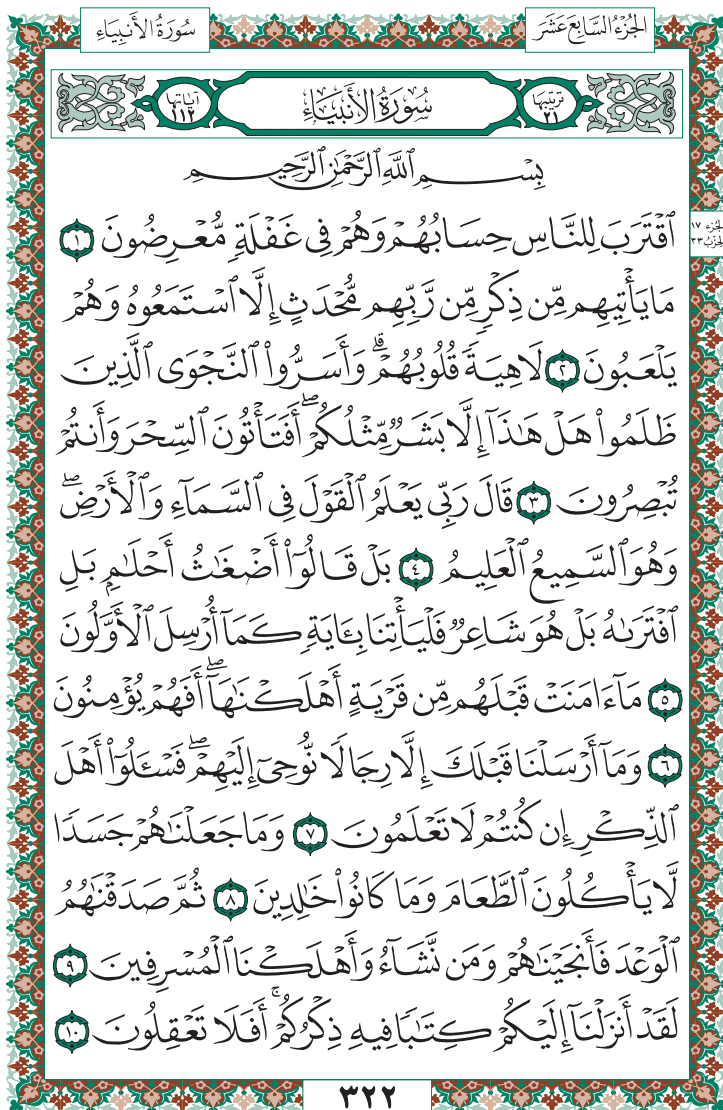 سُورَةُ الأَنبِيَاءِ
الجُزْءُ السَّابِعَ عَشَرَ
ترتيبها ٢١
سُورَةُ الأَنبِيَاءِ
آياتها ١١٢
بِسْمِ ٱللَّهِ ٱلرَّحْمَٰنِ ٱلرَّحِيمِ
الجزء ١٧
الحزب ٣٣
ٱقْتَرَبَ لِلنَّاسِ حِسَابُهُمْ وَهُمْ فِى غَفْلَةٍ مُّعْرِضُونَ ١
مَا يَأْتِيهِم مِّن ذِكْرٍ مِّن رَّبِّهِم مُّحْدَثٍ إِلَّا ٱسْتَمَعُوهُ وَهُمْ
يَلْعَبُونَ ٢ لَاهِيَةً قُلُوبُهُمْ ۗ وَأَسَرُّوا۟ ٱلنَّجْوَى ٱلَّذِينَ
ظَلَمُوا۟ هَلْ هَٰذَآ إِلَّا بَشَرٌ مِّثْلُكُمْ ۖ أَفَتَأْتُونَ ٱلسِّحْرَ وَأَنتُمْ
تُبْصِرُونَ ٣ قَالَ رَبِّى يَعْلَمُ ٱلْقَوْلَ فِى ٱلسَّمَآءِ وَٱلْأَرْضِ ۖ
وَهُوَ ٱلسَّمِيعُ ٱلْعَلِيمُ ٤ بَلْ قَالُوٓا۟ أَضْغَٰثُ أَحْلَٰمٍۭ بَلِ
ٱفْتَرَىٰهُ بَلْ هُوَ شَاعِرٌ فَلْيَأْتِنَا بِـَٔايَةٍ كَمَآ أُرْسِلَ ٱلْأَوَّلُونَ
٥ مَآ ءَامَنَتْ قَبْلَهُم مِّن قَرْيَةٍ أَهْلَكْنَٰهَآ ۖ أَفَهُمْ يُؤْمِنُونَ
٦ وَمَآ أَرْسَلْنَا قَبْلَكَ إِلَّا رِجَالًا نُّوحِىٓ إِلَيْهِمْ ۖ فَسْـَٔلُوٓا۟ أَهْلَ
ٱلذِّكْرِ إِن كُنتُمْ لَا تَعْلَمُونَ ٧ وَمَا جَعَلْنَٰهُمْ جَسَدًا
لَّا يَأْكُلُونَ ٱلطَّعَامَ وَمَا كَانُوا۟ خَٰلِدِينَ ٨ ثُمَّ صَدَقْنَٰهُمُ
ٱلْوَعْدَ فَأَنجَيْنَٰهُمْ وَمَن نَّشَآءُ وَأَهْلَكْنَا ٱلْمُسْرِفِينَ ٩
لَقَدْ أَنزَلْنَآ إِلَيْكُمْ كِتَٰبًا فِيهِ ذِكْرُكُمْ ۖ أَفَلَا تَعْقِلُونَ ١٠
٣٢٢